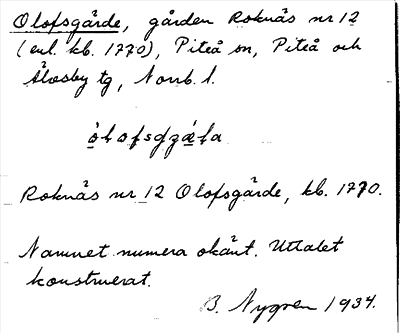 Olofsgårde, gården Roknäs nr 12
(enl. kb. 1770), Piteå sn, Piteå och
Älvsby tg, Norrb. l.
Roknäs nr 12 Olofsgårde, kb. 1770.
Namnet numera okänt. Uttalet
konstruerat.
B. Nygren 1934.